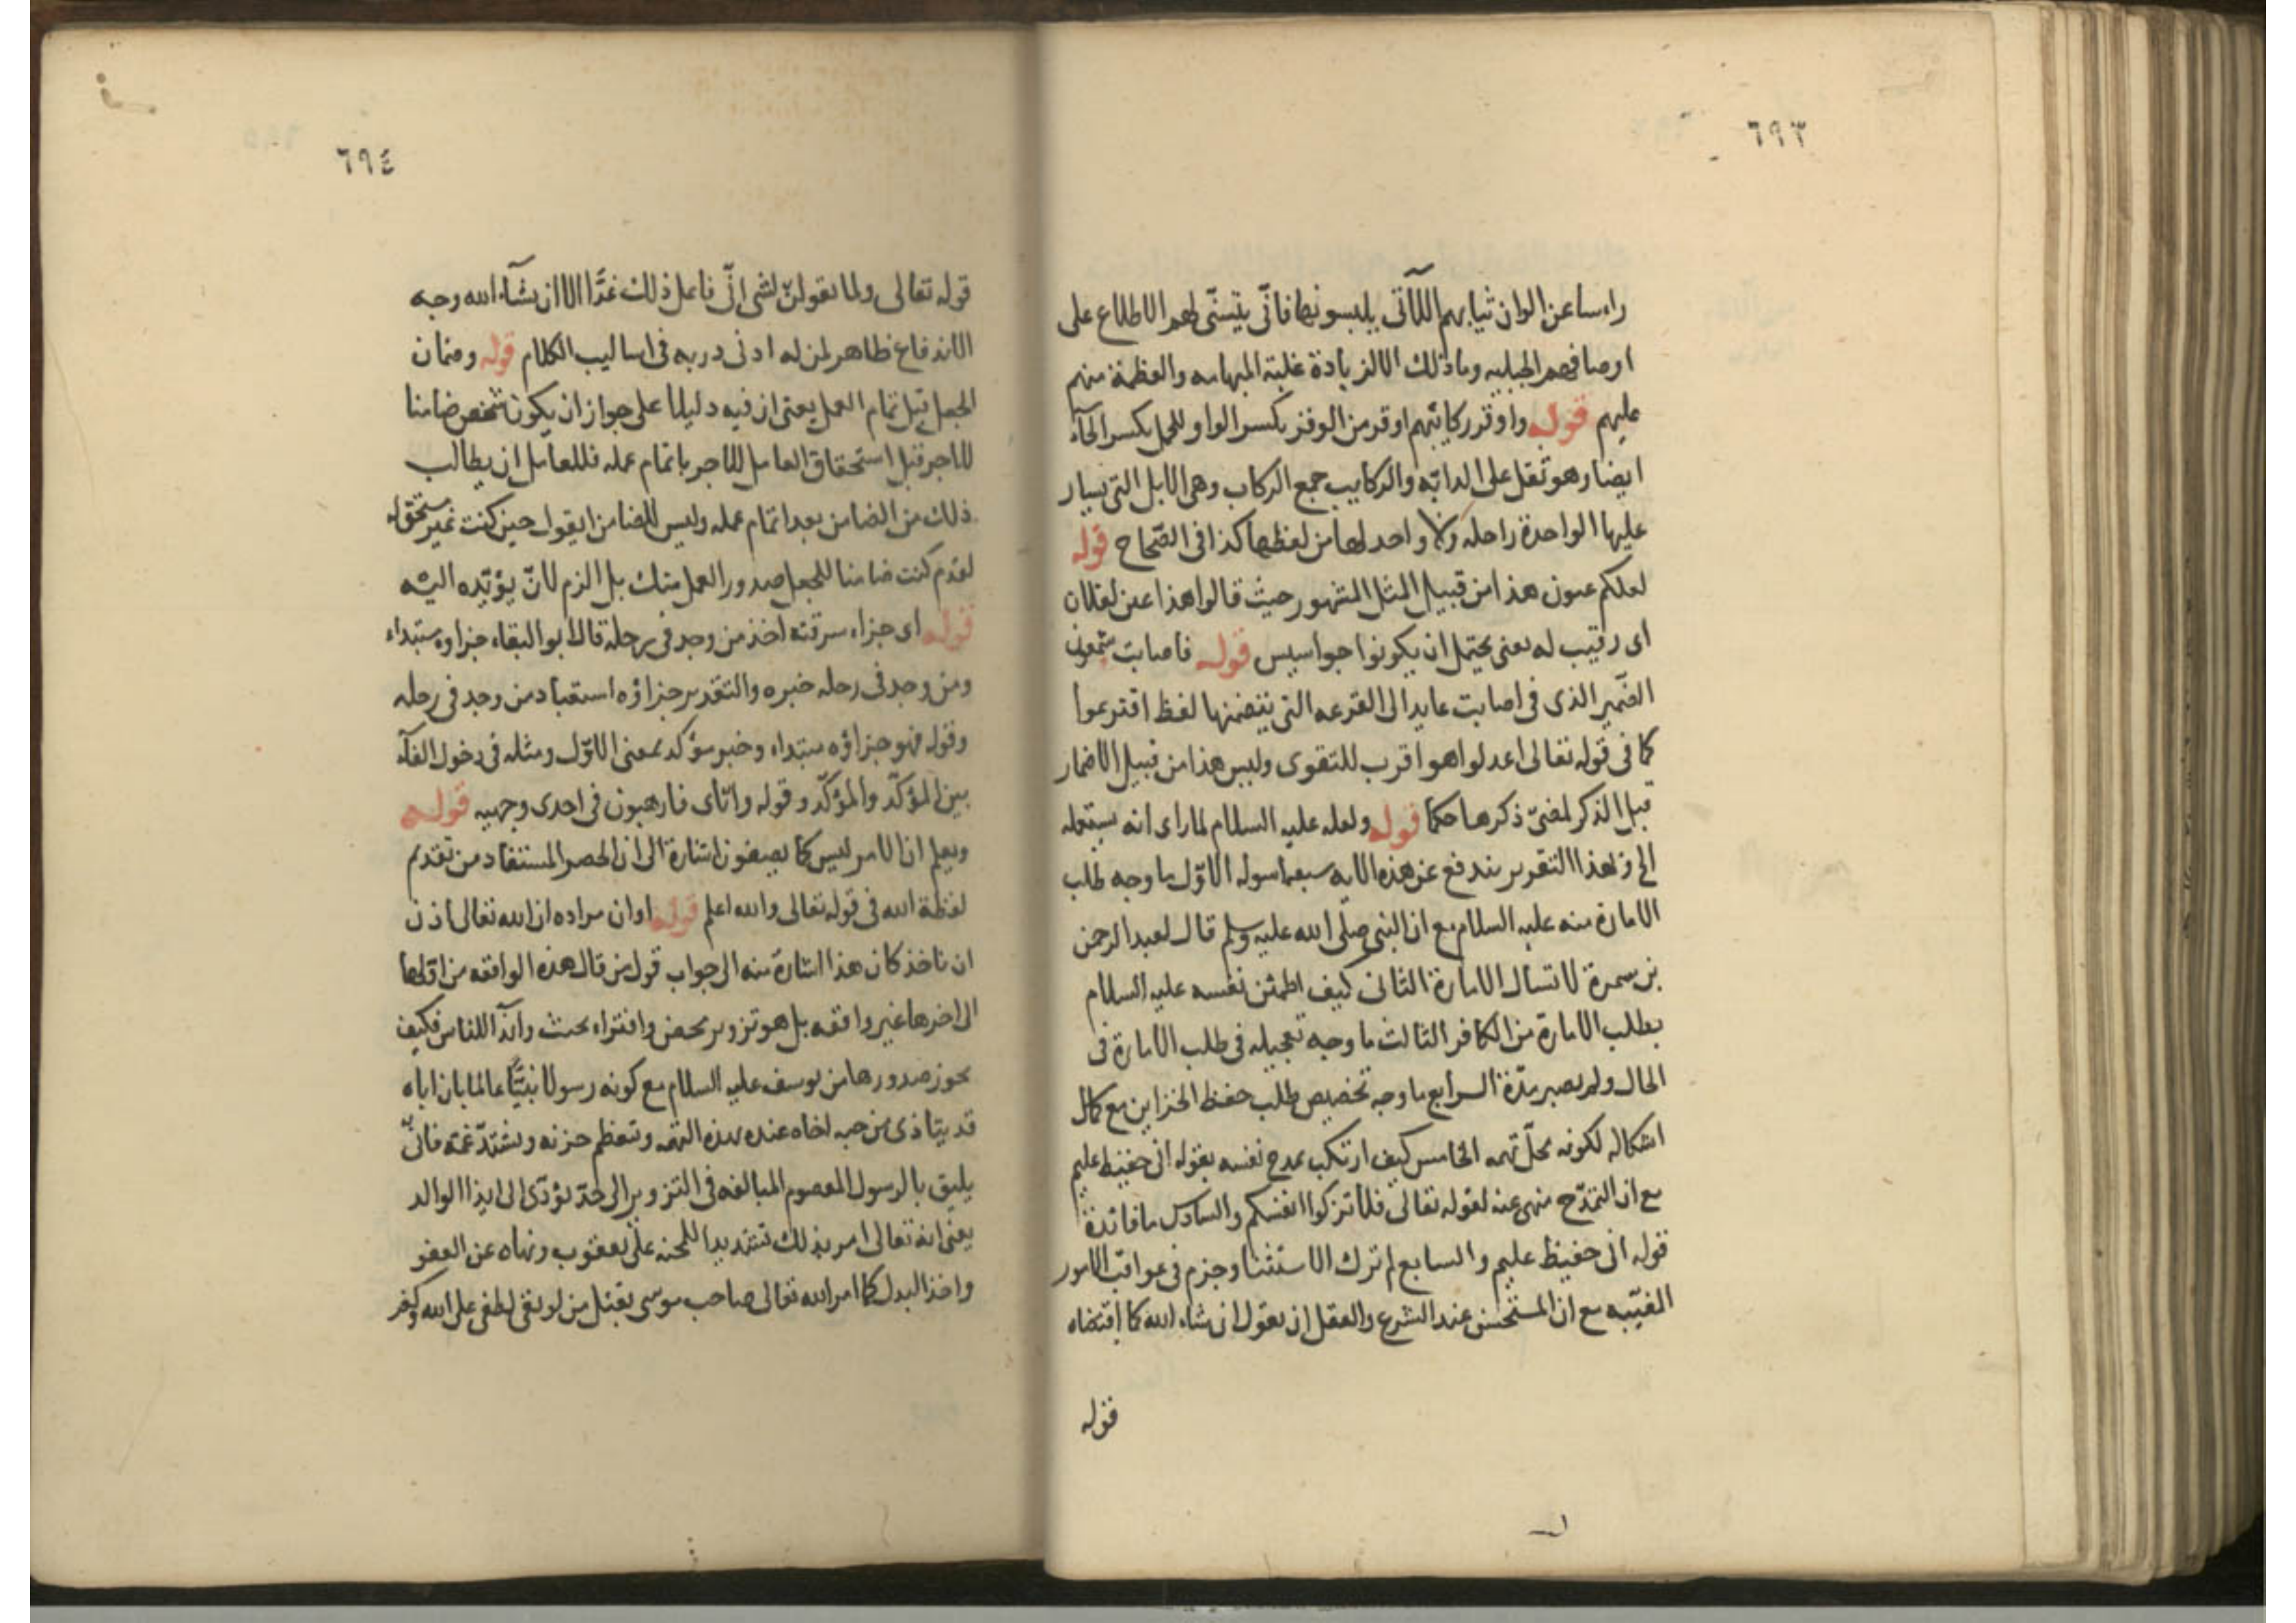 ٦٩٣
راسا عن الوان ثيابهم اللآتى يلبسونها فانّى يتيسّى لهم الاطلاع على
اوصافهم الجبليه وما ذلك الا لزيادة غلبة المهابه والعظمة منهم
عليهم قوله واوقر ركائبهم اوقر من الوقر بكسر الواو للحمل بكسر الحآء
ايضا وهو ثقل على الدابّه والركايب جمع الركاب وهى الابل التى يسار
عليها الواحدة راحله ولا واحد لها من لفظها كذا فى الصّحاح قوله
لعلكم عيون هذا من قبيل المثل المشهور حيث قالوا هذا عين لفلان
اى رقيب له يعنى يحتمل ان يكونوا جواسيس قوله فاصابت شمعون
الضّمير الذى فى اصابت عايد الى القرعه التى يتضمنها لفظ اقترعوا
كما فى قوله تعالى اعدلوا هو اقرب للتقوى وليس هذا من قبيل الاضمار
قبل الذكر لمضىّ ذكرها حكما قوله ولعله عليه السلام لما راى انه يستعمله
الخ وبهذا التقرير يندفع عن هذه الايه سبعة اسوله الاوّل ما وجه طلب
الامارة منه عليه السلام مع ان النبى صلى الله عليه وسلم قال لعبد الرحمن
بن سمرة لا تسال الامارة الثانى كيف اطمئن نفسه عليه السلام
بطلب الامارة من الكافر الثالث ما وجه تعجيله فى طلب الامارة فى
الحال ولم يصبر مدّة الرابع ما وجه تخصيص طلب حفظ الخزاين مع كمال
اشكاله لكونه محلّ تهمه الخامس كيف ارتكب بمدح نفسه بقوله انى حفيظ عليم
مع ان التمدّح منهى عنه لقوله تعالى فلا تزكوا انفسكم والسادس ما فائدة
قوله انى حفيظ عليم والسابع لم ترك الاستثنا وجزم فى عواقب الامور
المغيّبه مع ان المستحسن عند الشرع والعقل ان يقول ان شاء الله كما اقتضاه
قوله
٦٩٤
قوله تعالى ولا تقولنّ لشى انّى فاعل ذلك غدًا الا ان يشآء الله وجه
الاندفاع ظاهر لمن له ادنى دربه فى اساليب الكلام قوله وضمان
الجعل قبل تمام العمل يعنى ان فيه دليلا على جواز ان يكون شخص ضامنا
للاجر قبل استحقاق العامل للاجر باتمام عمله فللعامل ان يطالب
ذلك من الضامن بعد اتمام عمله وليس للضامن ان يقول حين كنت غير مستحق له
لعدم كنت ضامنا للجعل صدور العمل منك بل الزم لان يؤيّده اليه
قوله اى جزاء سرقته اخذ من وجد فى رحله قال ابو البقاء جزاوه مبتداء
ومن وجد فى رحله خبره والتقدير جزاؤه استعباد من وجد فى رحله
وقوله فهو جزاؤه مبتداء وخبر مؤكد لمعنى الاوّل ومثله فى دخول الفآء
بين المؤكّد والمؤكّد وقوله وايّاى فارهبون فى احدى وجهيه قوله
ويعلم ان الامر ليس كما يصفون اشارة الى ان الحصر المستفاد من تقدم
لفظة الله فى قوله تعالى والله اعلم قوله او ان مراده ان الله تعالى اذن
ان ناخذ كان هذا اشارة منه الى جواب قول من قال هذه الواقعه من اوّلها
الى اخرها غير واقعه بل هو تزوير محض وافتراء بحث وايذآ للناس فكيف
يجوز صدورها من يوسف عليه السلام مع كونه رسولا نبيًّا عالما بان اباه
قد يتاذى من حبه اخاه عنده بهذه التهمه وتعظم حزنه ويشتدّ غمّه فانىّ
يليق بالرسول المعصوم المبالغه فى التزوير الى حدّ يؤدّى الى ايذا الوالد
يعنى انه تعالى امر بذلك تشديدا للمحنه على يعقوب ونهاه عن العفو
واخذ البدل كما امر الله تعالى صاحب موسى بقتل من لو بقى لطغى على الله وكفر